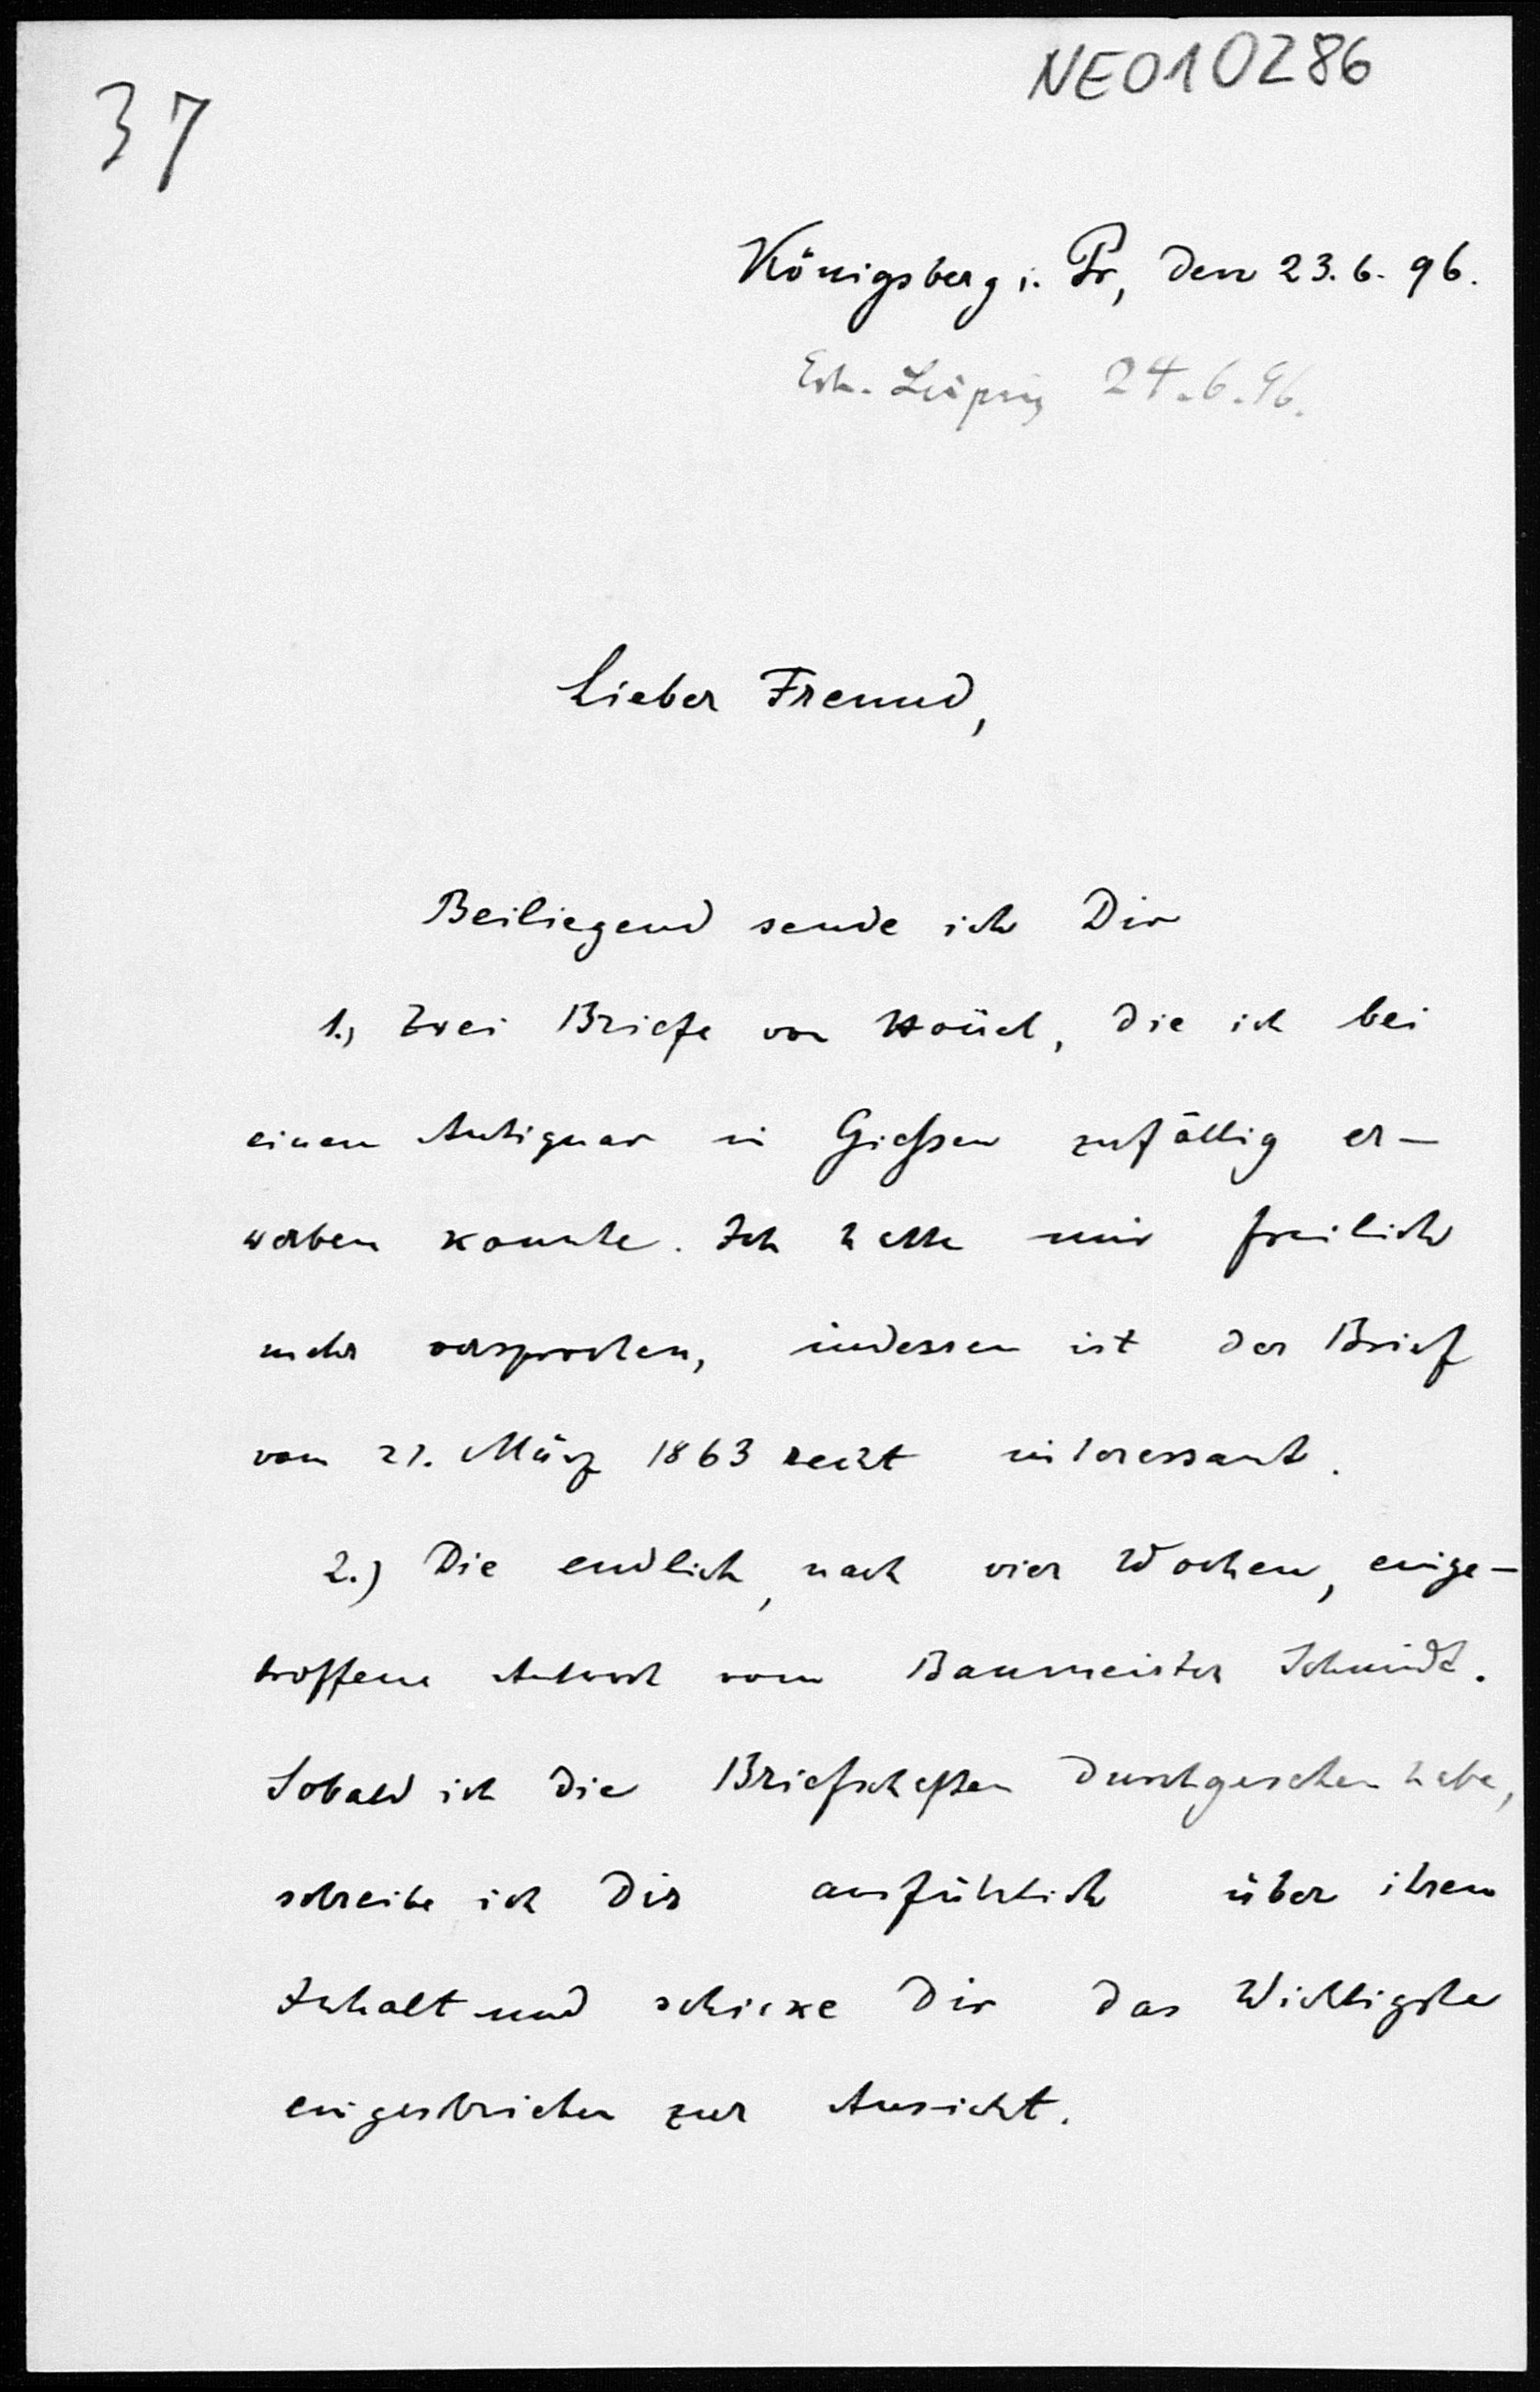 NE010286
37
Königsberg i. Pr, den 23.6.96.
Erh. Leipzig 24.6.96.
Lieber Freund,
Beiliegend sende ich Dir
1.) Zwei Briefe von Hoüel, die ich bei
einem Antiquar in Giessen zufällig er-
werben konnte. Ich hatte mir freilich
mehr versprochen, indessen ist der Brief
vom 21. März 1863 recht interessant.
2.) Die endlich, nach vier Wochen, einge-
troffene Antwort vom Baumeister Schmidt.
Sobald ich die Briefschaften durchgesehen habe,
schreibe ich Dir ausführlich über ihren
Inhalt und schicke Dir das Wichtigste
eingeschrieben zur Ansicht.